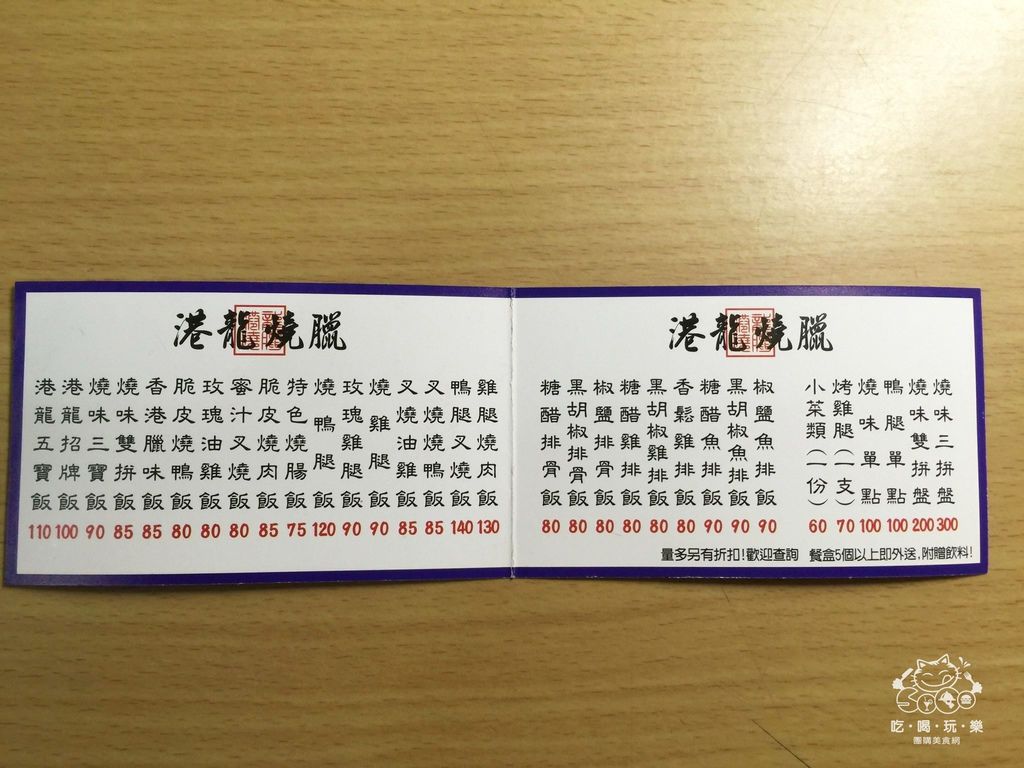 港龍燒臘
港龍五寶飯 110
港龍招牌飯 100
燒味三寶飯 90
燒味雙拼飯 85
香港臘味飯 85
脆皮燒鴨飯 80
玫瑰油雞飯 80
蜜汁叉燒飯 80
脆皮燒肉飯 85
特色燒腸飯 75
燒鴨腿飯 120
玫瑰雞腿飯 90
燒雞腿飯 90
叉燒油雞飯 85
叉燒燒鴨飯 85
鴨腿叉燒飯 140
雞腿燒肉飯 130
港龍燒臘
糖醋排骨飯 80
黑胡椒排骨飯 80
椒鹽排骨飯 80
糖醋雞排飯 80
黑胡椒雞排飯 80
香鬆雞排飯 80
糖醋魚排飯 90
黑胡椒魚排飯 90
椒鹽魚排飯 90
小菜類(一份) 60
烤雞腿(一支) 70
燒味單點 100
鴨腿單點 100
燒味雙拼盤 200
燒味三拼盤 300
量多另有折扣!歡迎查詢 餐盒5個以上即外送,附贈飲料!
吃・喝・玩・樂
團購美食網